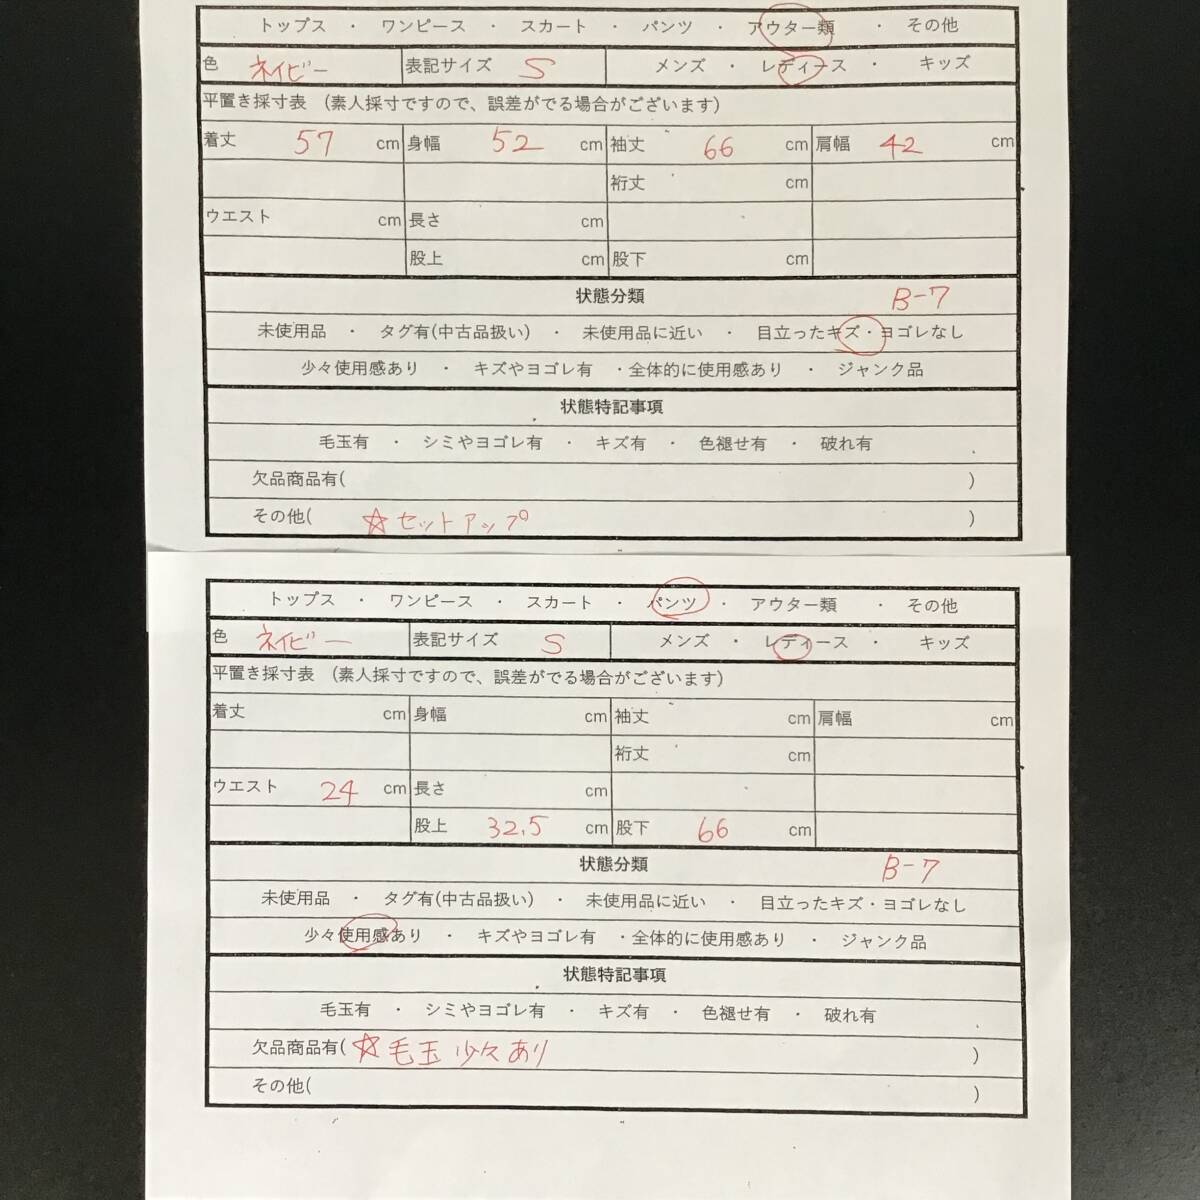 トップス ・ ワンピース ・ スカート ・ パンツ ・ アウター類 ・ その他
色 ネイビー 表記サイズ S メンズ ・ レディース ・ キッズ
平置き採寸表 (素人採寸ですので、誤差がでる場合がございます)
着丈 57 cm 身幅 52 cm 袖丈 66 cm 肩幅 42 cm
裄丈 cm
ウエスト cm 長さ cm
股上 cm 股下 cm
状態分類 B-7
未使用品 ・ タグ有(中古品扱い) ・ 未使用品に近い ・ 目立ったキズ・ヨゴレなし
少々使用感あり ・ キズやヨゴレ有 ・全体的に使用感あり ・ ジャンク品
状態特記事項
毛玉有 ・ シミやヨゴレ有 ・ キズ有 ・ 色褪せ有 ・ 破れ有
欠品商品有( )
その他( ☆セットアップ )
トップス ・ ワンピース ・ スカート ・ パンツ ・ アウター類 ・ その他
色 ネイビー 表記サイズ S メンズ ・ レディース ・ キッズ
平置き採寸表 (素人採寸ですので、誤差がでる場合がございます)
着丈 cm 身幅 cm 袖丈 cm 肩幅 cm
裄丈 cm
ウエスト 24 cm 長さ cm
股上 32.5 cm 股下 66 cm
状態分類 B-7
未使用品 ・ タグ有(中古品扱い) ・ 未使用品に近い ・ 目立ったキズ・ヨゴレなし
少々使用感あり ・ キズやヨゴレ有 ・全体的に使用感あり ・ ジャンク品
状態特記事項
毛玉有 ・ シミやヨゴレ有 ・ キズ有 ・ 色褪せ有 ・ 破れ有
欠品商品有( ☆毛玉少々あり )
その他( )